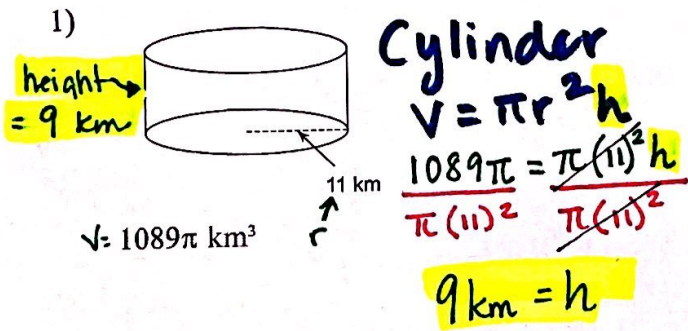 1)
height
= 9 km
11 km
r
V= 1089π km³
Cylinder
V = πr²h
1089π = π(11)²h
π(11)² π(11)²
9km = h